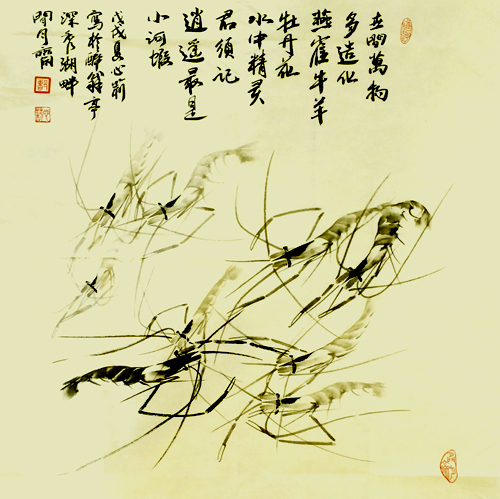 世間萬物
多造化
燕雀牛羊
牡丹花
水中精灵
君須记
逍遥最是
小河堰
戊戌夏心莉
寫於醉翁亭
深秀湖畔
閒月齋